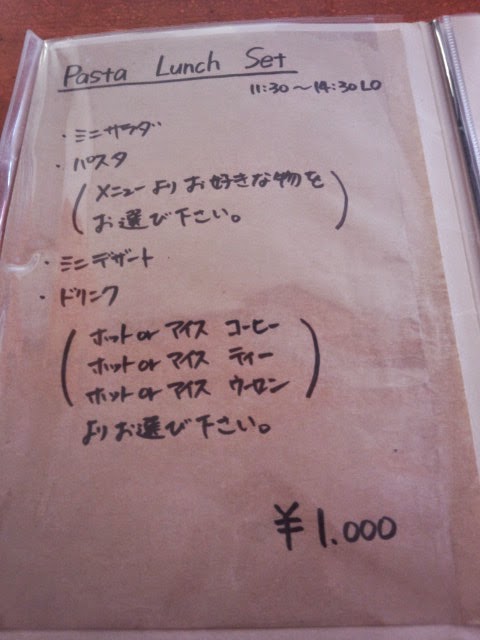 Pasta Lunch Set
11:30〜14:30 LO
・ミニサラダ
・パスタ
(メニューよりお好きな物を
お選び下さい。)
・ミニデザート
・ドリンク
(ホット or アイス コーヒー
ホット or アイス ティー
ホット or アイス ウーロン)
よりお選び下さい。
¥1.000